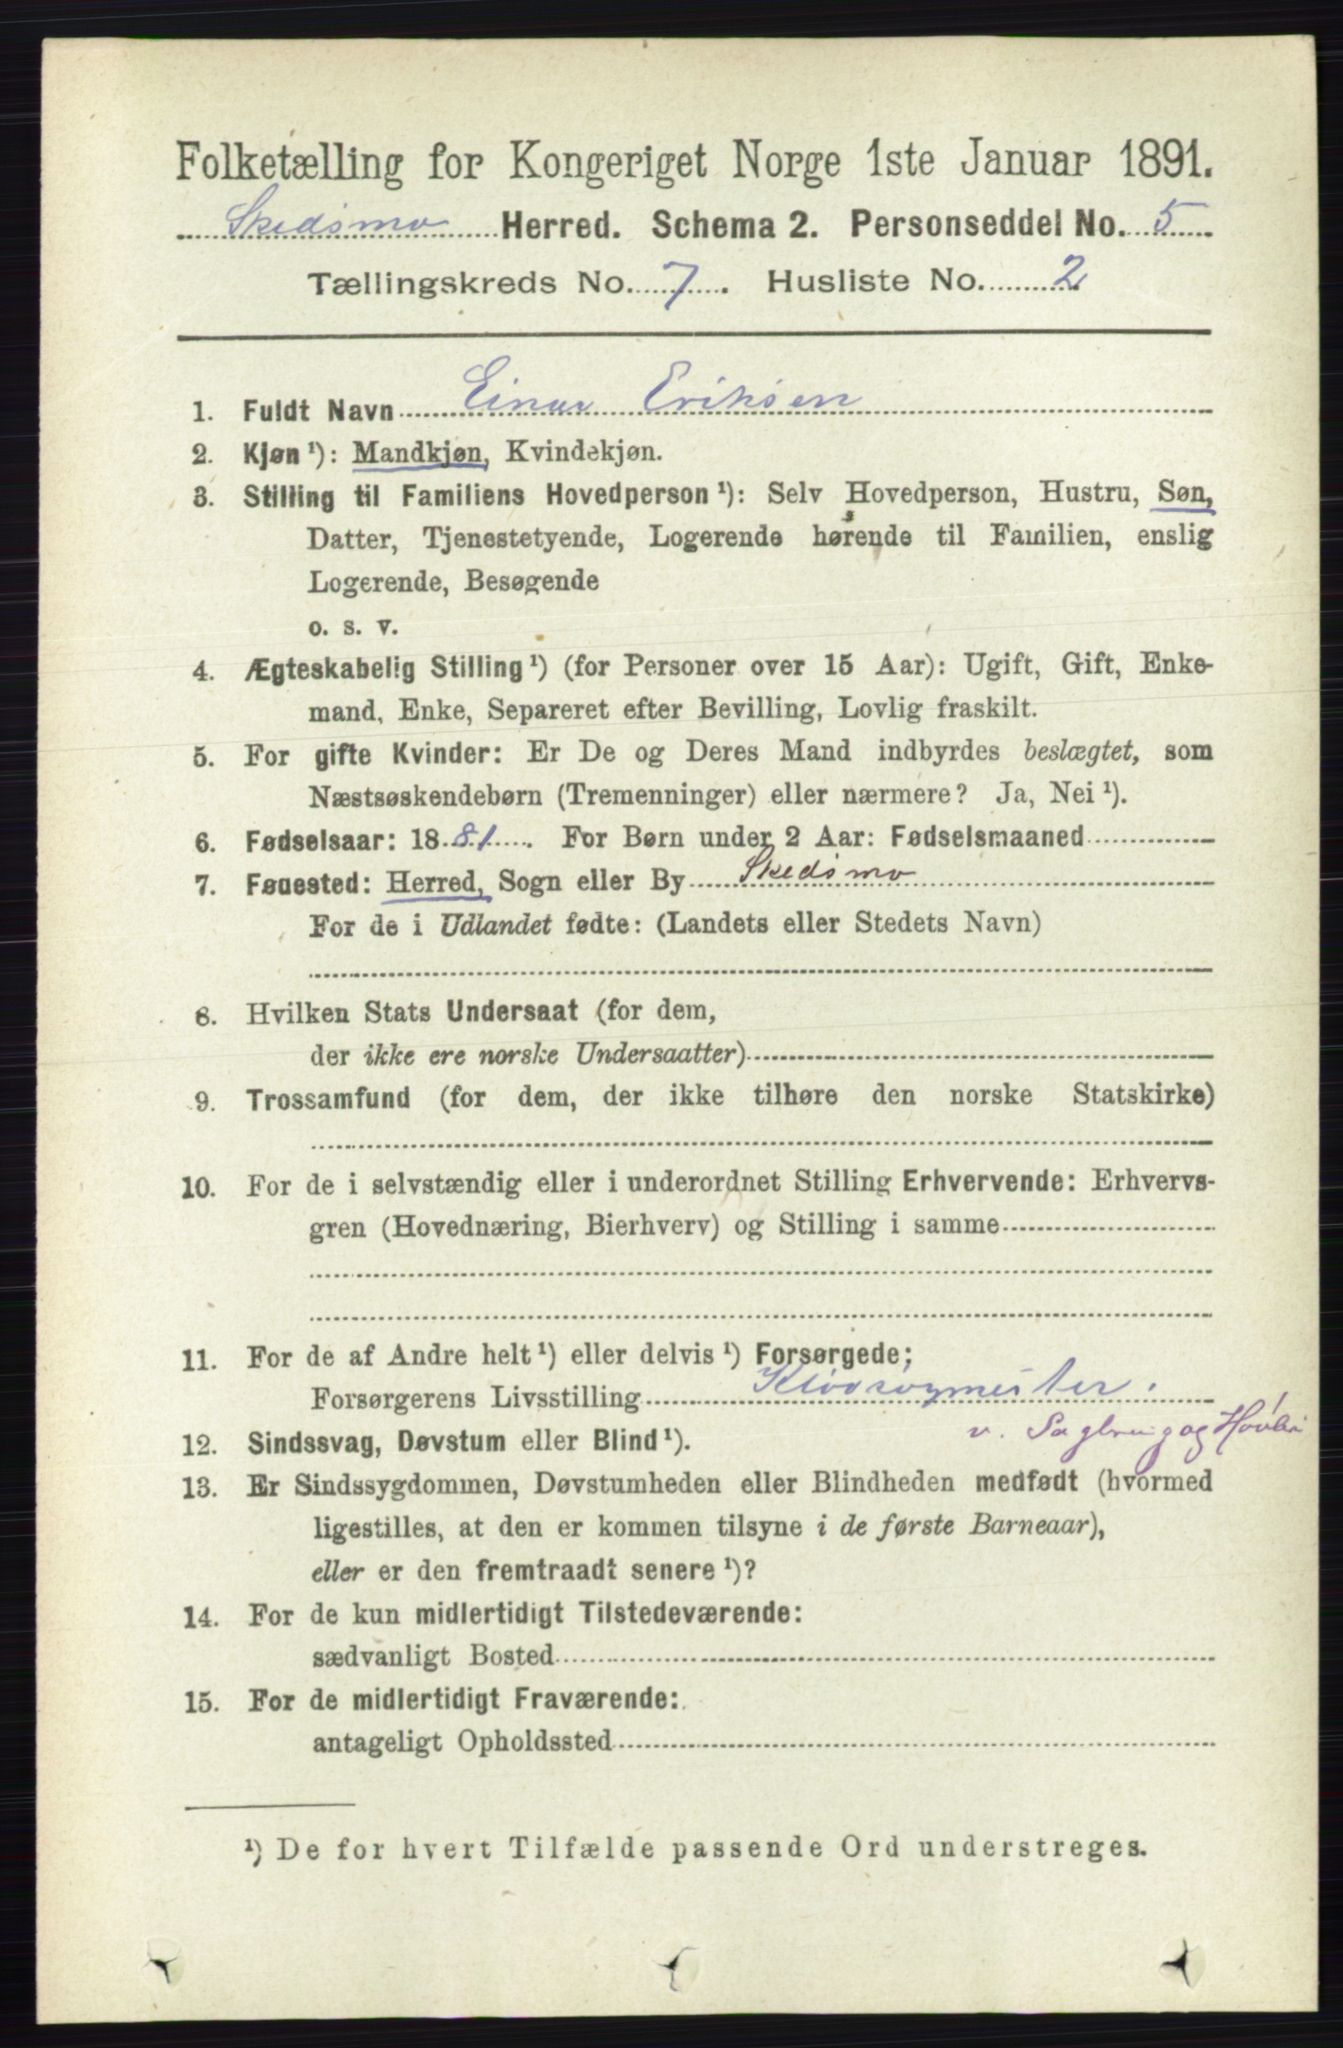 Folketælling for Kongeriget Norge 1ste Januar 1891.
Skedsmo Herred. Schema 2. Personseddel No. 5
Tællingskreds No. 7. Husliste No. 2
1. Fuldt Navn Einar Eriksen
2. Kjøn ¹): Mandkjøn, Kvindekjøn.
3. Stilling til Familiens Hovedperson ¹): Selv Hovedperson, Hustru, Søn,
Datter, Tjenestetyende, Logerende hørende til Familien, enslig
Logerende, Besøgende
o. s. v.
4. Ægteskabelig Stilling ¹) (for Personer over 15 Aar): Ugift, Gift, Enke-
mand, Enke, Separeret efter Bevilling, Lovlig fraskilt.
5. For gifte Kvinder: Er De og Deres Mand indbyrdes beslægtet, som
Næstsøskendebørn (Tremenninger) eller nærmere? Ja, Nei ¹).
6. Fødselsaar: 1881. For Børn under 2 Aar: Fødselsmaaned
7. Fødested: Herred, Sogn eller By Skedsmo
For de i Udlandet fødte: (Landets eller Stedets Navn)
8. Hvilken Stats Undersaat (for dem,
der ikke ere norske Undersaatter)
9. Trossamfund (for dem, der ikke tilhøre den norske Statskirke)
10. For de i selvstændig eller i underordnet Stilling Erhvervende: Erhvervs-
gren (Hovednæring, Bierhverv) og Stilling i samme
11. For de af Andre helt ¹) eller delvis ¹) Forsørgede;
Forsørgerens Livsstilling
v. og
12. Sindssvag, Døvstum eller Blind ¹).
13. Er Sindssygdommen, Døvstumheden eller Blindheden medfødt (hvormed
ligestilles, at den er kommen tilsyne i de første Barneaar),
eller er den fremtraadt senere ¹)?
14. For de kun midlertidigt Tilstedeværende:
sædvanligt Bosted
15. For de midlertidigt Fraværende:
antageligt Opholdssted
¹) De for hvert Tilfælde passende Ord understreges.